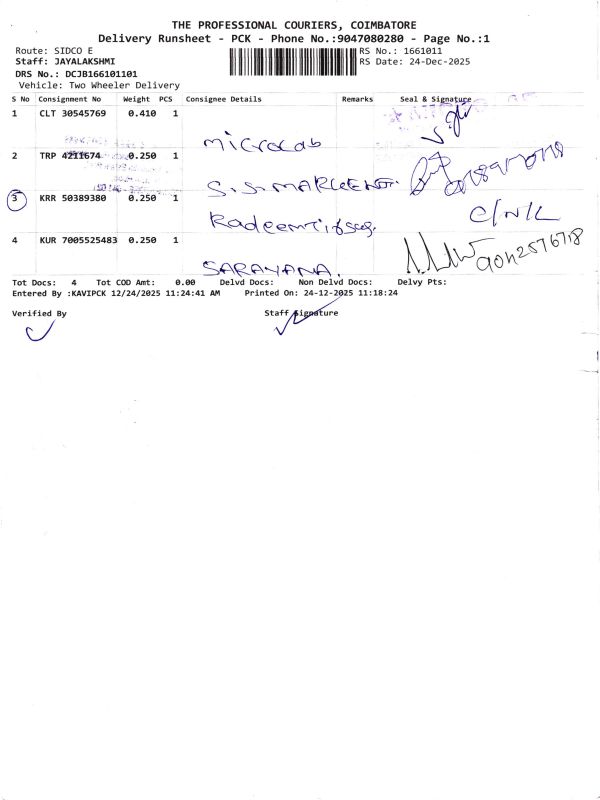 THE PROFESSIONAL COURIERS, COIMBATORE
Delivery Runsheet - PCK - Phone No.:9047080280 - Page No.:1
Route: SIDCO E
RS No.: 1661011
Staff: JAYALAKSHMI
RS Date: 24-Dec-2025
DRS No.: DCJB166101101
Vehicle: Two Wheeler Delivery
S No Consignment No Weight PCS Consignee Details Remarks Seal & Signature
1 CLT 30545769 0.410 1
microlab
2 TRP 4211674 0.250 1
S.S. MARKENT.
3 KRR 50389380 0.250 1
C/N/L
4 KUR 7005525483 0.250 1
SARAVANA.
Tot Docs: 4 Tot COD Amt: 0.00 Delvd Docs: Non Delvd Docs: Delvy Pts:
Entered By :KAVIPCK 12/24/2025 11:24:41 AM Printed On: 24-12-2025 11:18:24
Verified By
Staff Signature